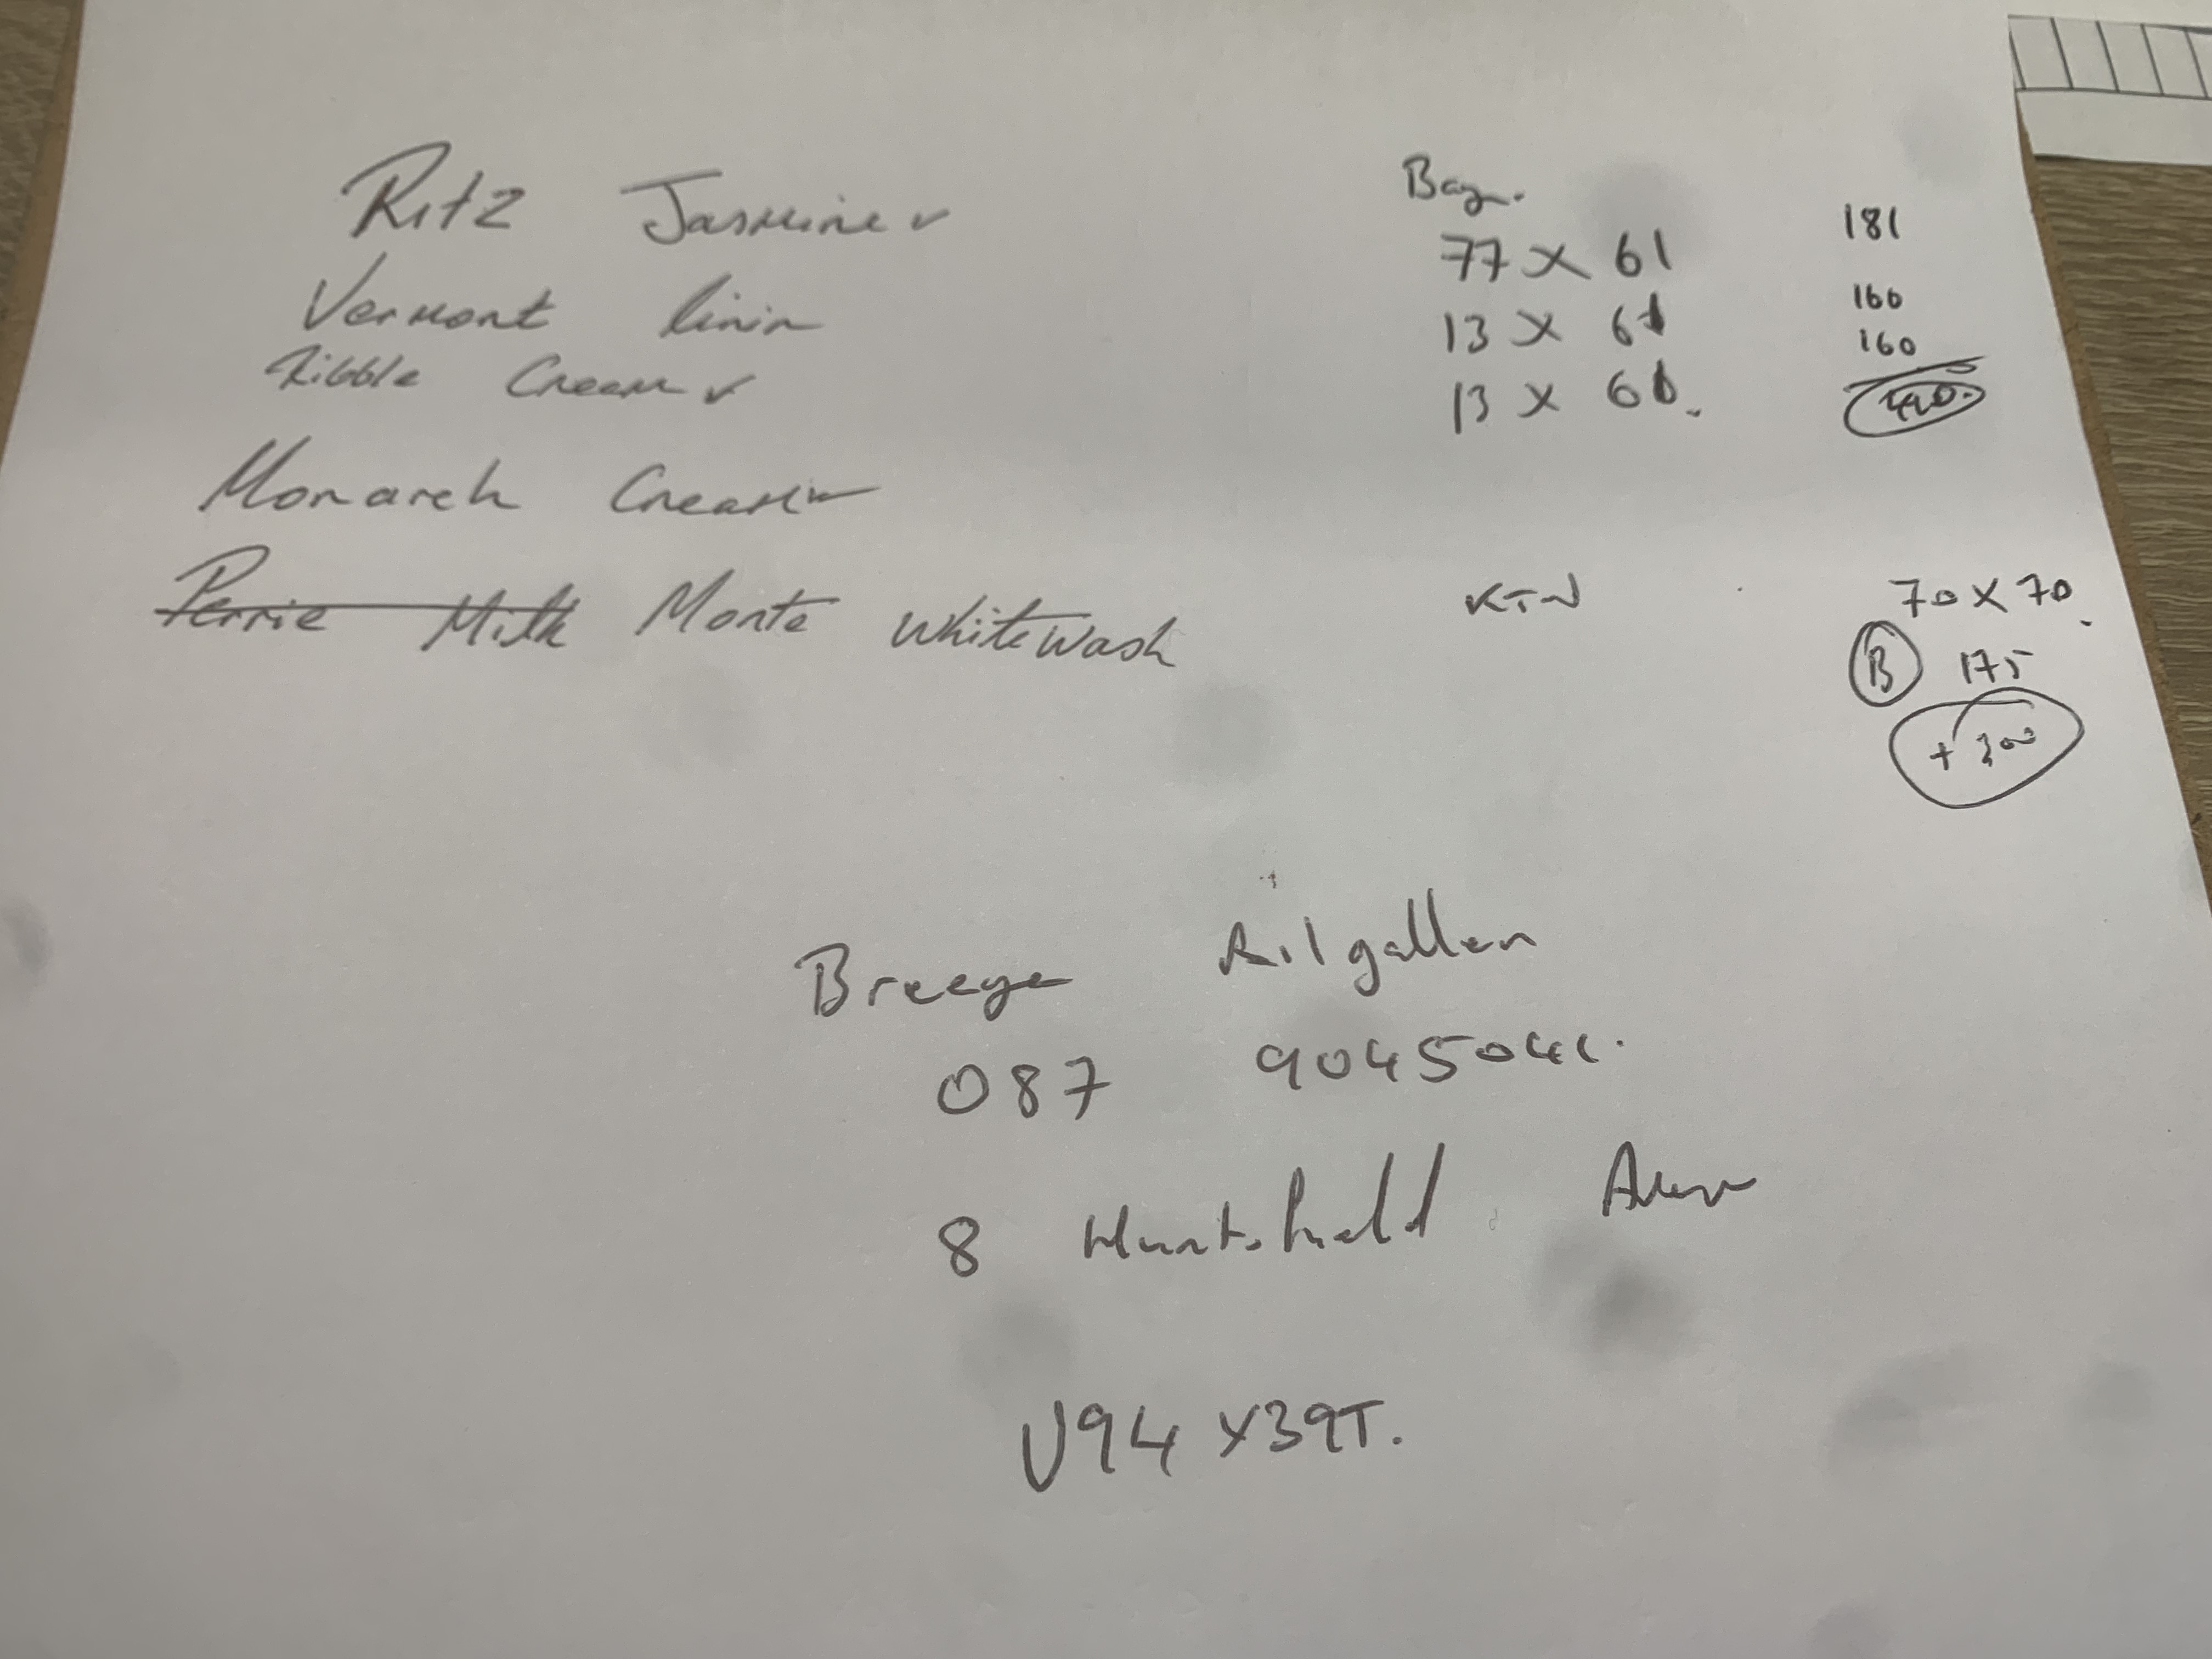 Ritz Jasmine ✓
Vermont linin
Ribble Cream ✓
Monarch Cream
Perrie Milk Monte White Wash
Bay.
77 x 61
13 x 61
13 x 60.
181
160
160
KTN
70 x 70.
B 175
+ 300
Breege Kilgallen
087 904504
8 Huntsfield
V94 X39T.